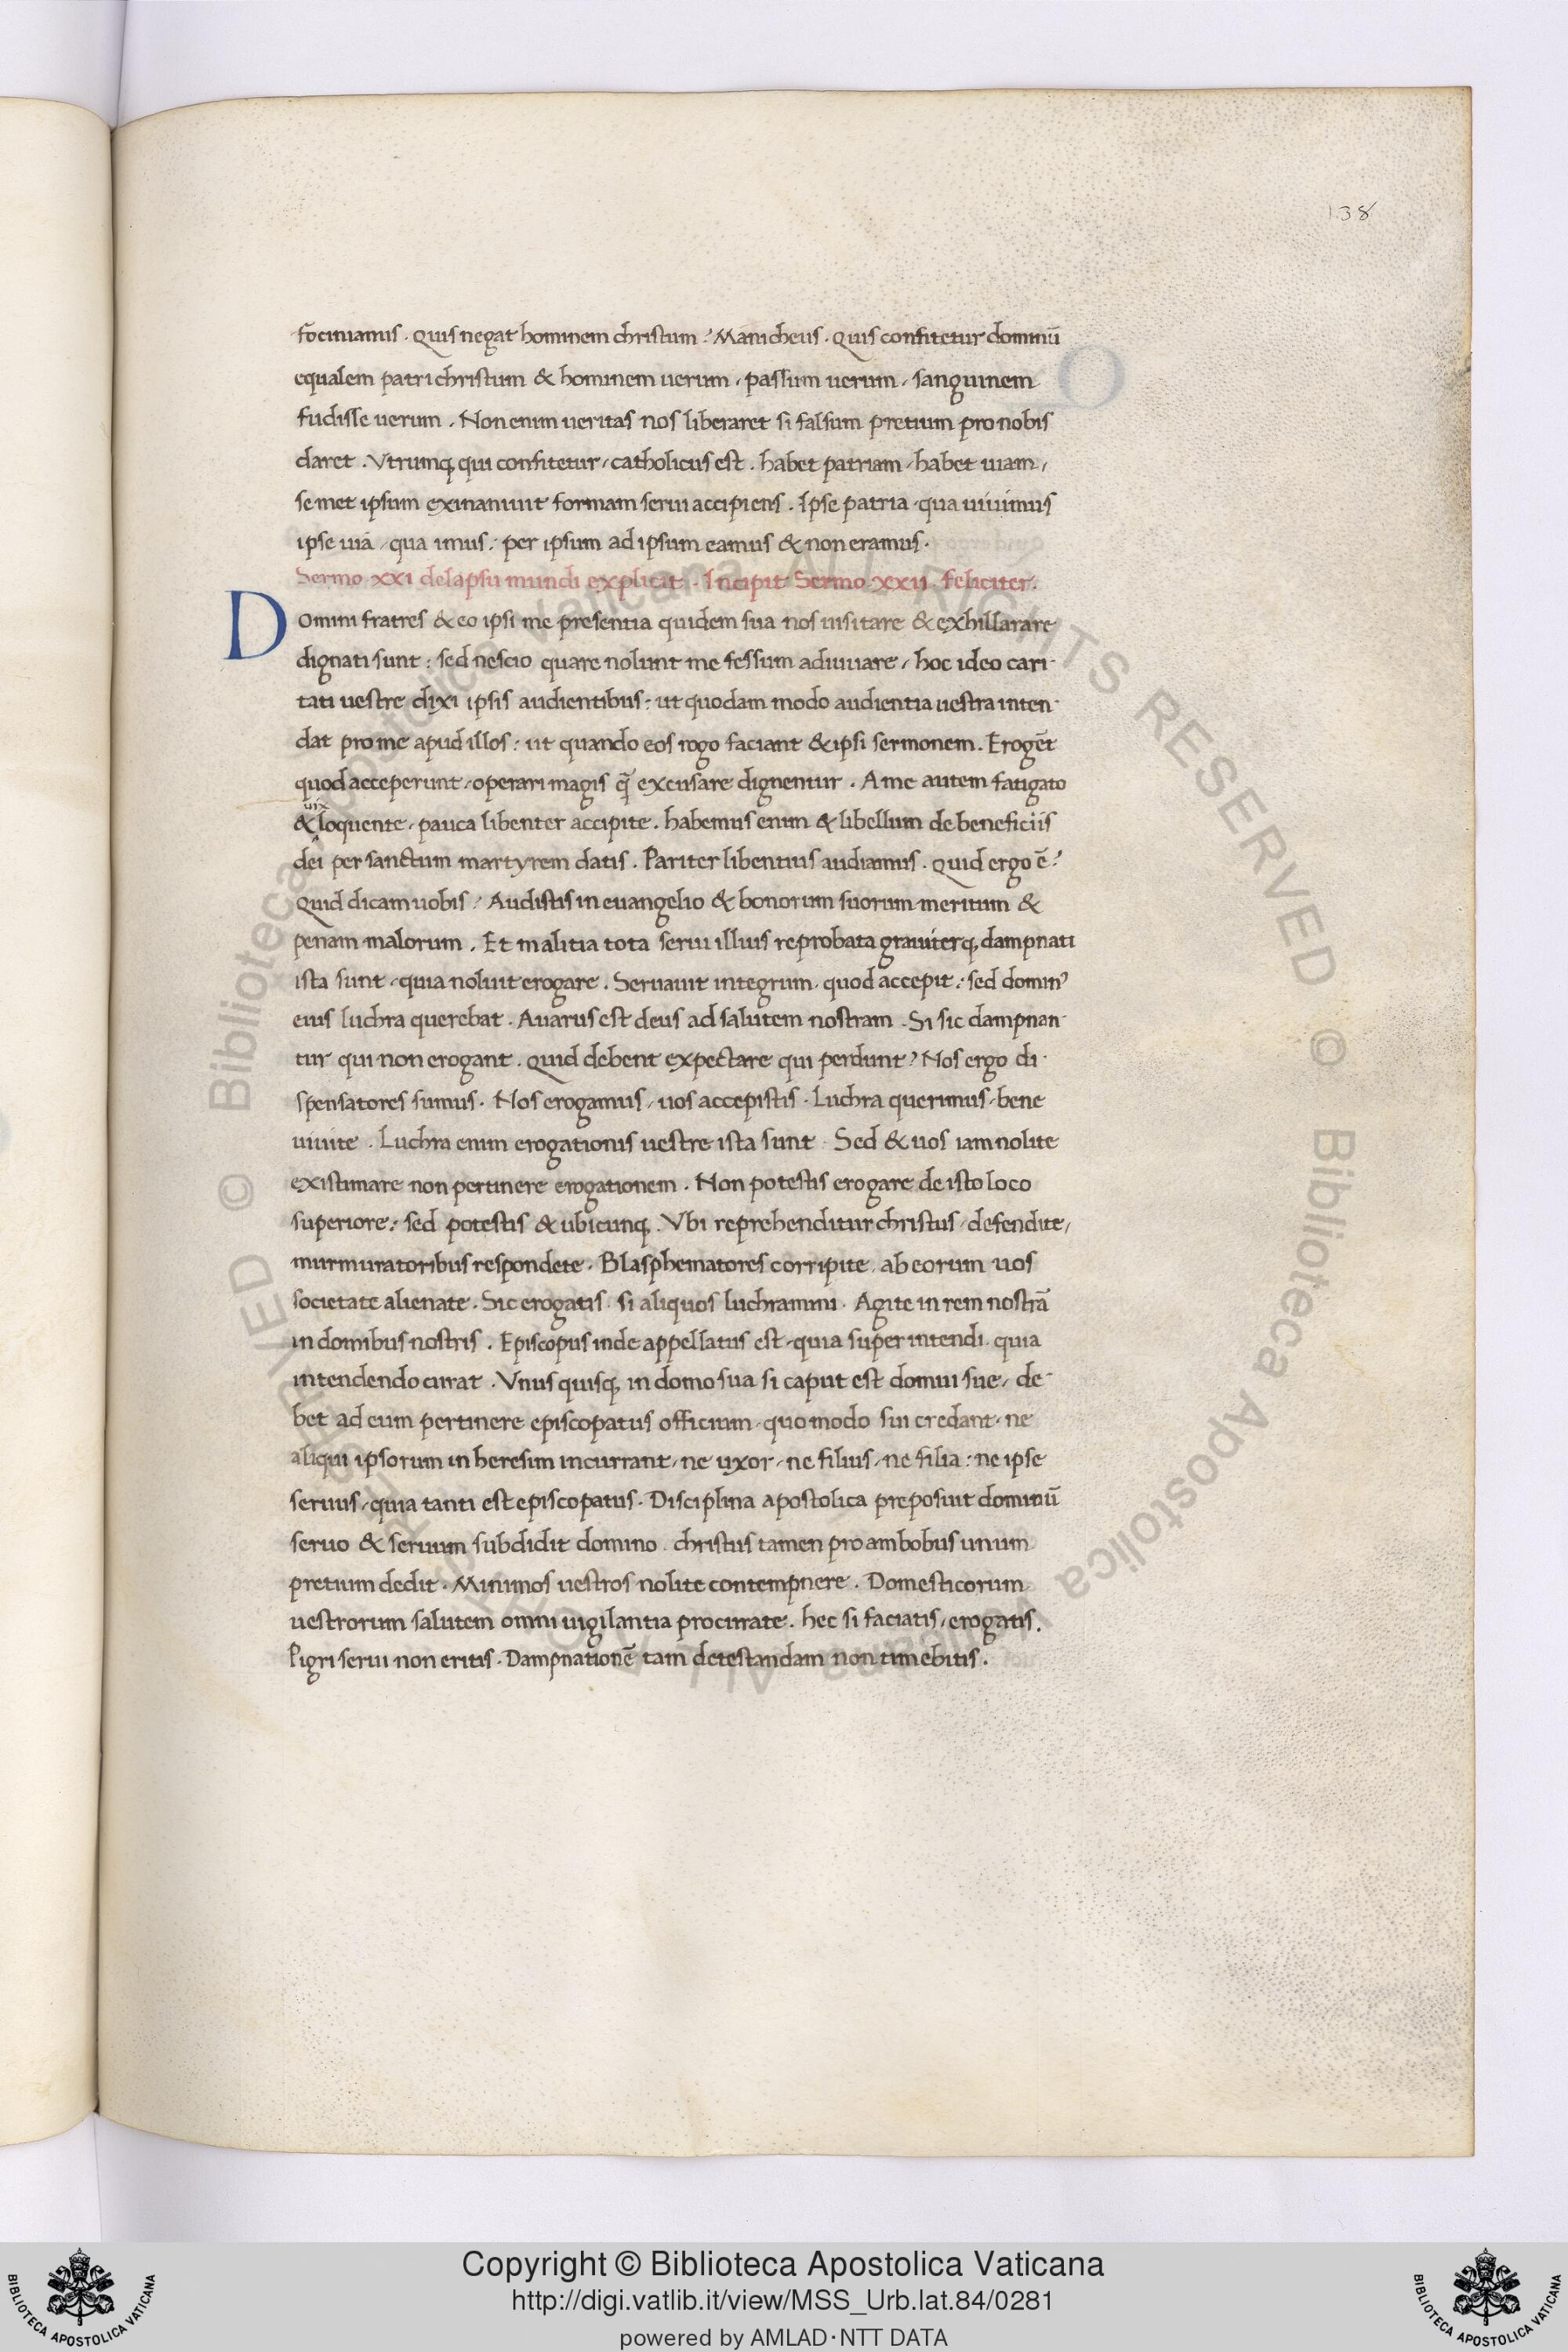 138
fōciniamus . Quis negat hominem christum ? Manicheus . Quis confitetur dominū
equalem patri christum & hominem uerum , passum uerum , sanguinem
fudisse uerum . Non enim ueritas nos liberaret si falsum pretium pro nobis
daret . Vtrunq; qui confitetur , catholicus est . habet patriam , habet uiam ,
se met ipsum exinaniuit formam serui accipiens . Ipse patria , qua uiuimus
ipse uiā , qua imus : per ipsum ad ipsum eamus & non eramus .
Sermo XXI de lapsu mundi explicit . Incipit Sermo XXII . feliciter .
Domini fratres & eo ipsi me presentia quidem sua nos uisitare & exhillarare
dignati sunt : sed nescio quare nolunt me fessum adiuuare , hoc ideo cari-
tati uestre dixi ipsis audientibus : ut quodam modo audientia uestra inten-
dat pro me apud illos : ut quando eos rogo faciant & ipsi sermonem . Erogēt
quod acceperunt , operari magis q̄ excusare dignentur . A me autem fatigato
uix
& loquente , pauca libenter accipite . habemus enim & libellum de beneficiis
dei per sanctum martyrem datis . Pariter libentius audiamus . Quid ergo ē ?
Quid dicam uobis ? Audistis in euangelio & bonorum suorum meritum &
penam malorum . Et malitia tota serui illius reprobata grauiterq; dampnati
ista sunt , quia noluit erogare . Seruauit integrum , quod accepit : sed domin⁹
eius luchra querebat . Auarus est deus ad salutem nostram . Si sic dampnan-
tur qui non erogant . quid debent expectare qui perdunt ? Nos ergo di-
spensatores sumus . Nos erogamus , uos accepistis . Luchra querimus , bene
uiuite . Luchra enim erogationis uestre ista sunt . Sed & uos iam nolite
existimare non pertinere erogationem . Non potestis erogare de isto loco
superiore : sed potestis & ubicunq; . Vbi reprehenditur christus , defendite ,
murmuratoribus respondete . Blasphematores corripite , ab eorum uos
societate alienate . Sic erogatis , si aliquos luchramini . Agite in rem nostrā
in domibus nostris . Episcopus inde appellatus est , quia superintendi . quia
intendendo curat . Vnus quisq; in domo sua si caput est domui sue , de-
bet ad eum pertinere episcopatus officium , quo modo sui credant , ne
aliqui ipsorum in heresim incurrant , ne uxor , ne filius , ne filia : ne ipse
seruus , quia tanti est episcopatus . Disciplina apostolica preposuit dominū
seruo & seruum subdidit domino . christus tamen pro ambobus unum
pretium dedit . Minimos uestros nolite contempnere . Domesticorum
uestrorum salutem omni uigilantia procurate . hec si faciatis , erogatis .
Pigri serui non eritis . Dampnationē tam detestandam non timebitis .
Copyright © Biblioteca Apostolica Vaticana
http://digi.vatlib.it/view/MSS_Urb.lat.84/0281
powered by AMLAD·NTT DATA
BIBLIOTECA APOSTOLICA VATICANA
BIBLIOTECA APOSTOLICA VATICANA